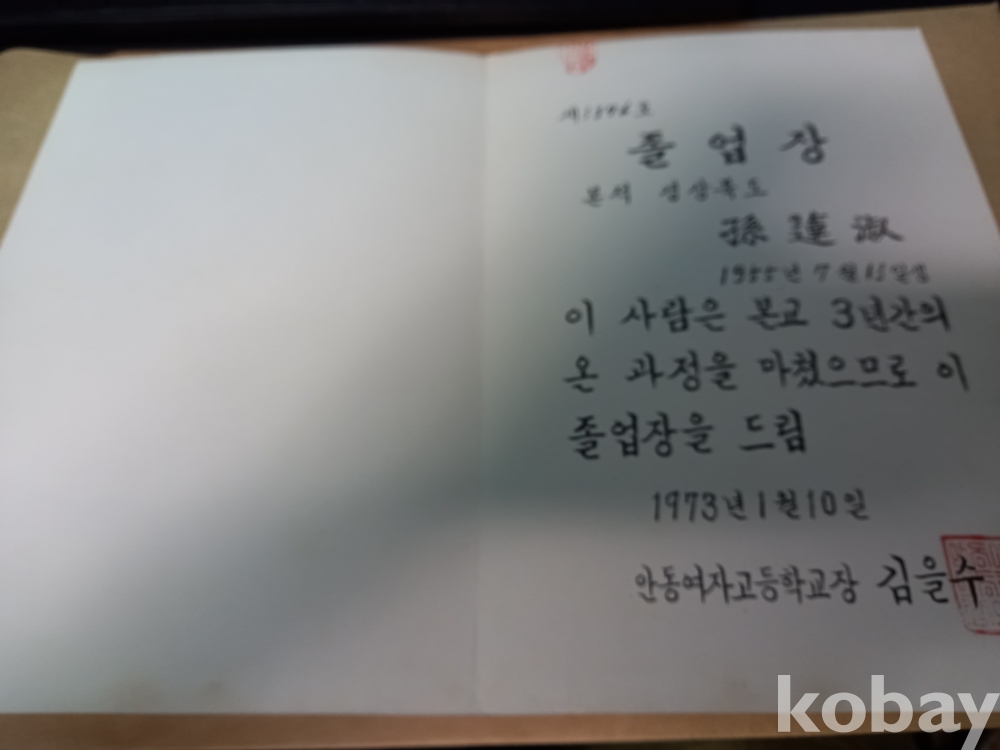 졸업장
본적 경상북도
孫蓮淑
1955년 7월
이 사람은 본교 3년간의
온 과정을 마쳤으므로 이
졸업장을 드림
1973년 1월 10일
안동여자고등학교장 김을수
kobay